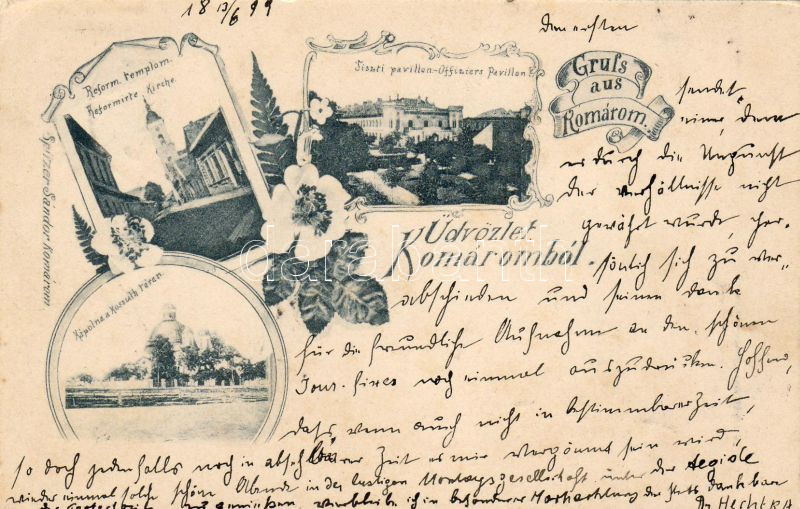 18 13/6 99
Reform. templom.
Reformirte Kirche
Tiszti pavillon-Officiers Pavillon.
Gruß
aus
Komárom.
Spitzer Sándor Komárom
Üdvözlet
Komáromból.
Kápolna a Kossuth téren.
darabanth
den ersten
sendet
einer, dem
es durch die Ungunst
der Verhältnisse nicht
gewährt wurde, per-
sönlich sich zu ver-
abschieden und seinen Dank
für die freundliche Aufnahme an den schönen
Jour-fixes noch einmal auszudrücken. Hoffend,
daß wenn auch nicht in bestimmbarer Zeit,
so doch jedenfalls noch in absehbarer Zeit es mir vergönnt sein wird,
wieder einmal solche schöne Abende in der lustigen Montagsgesellschaft unter der Aegide
zu genießen, verbleibe ich in besonderer Hochachtung Ihr stets dankbarer
Dr Hecht R A